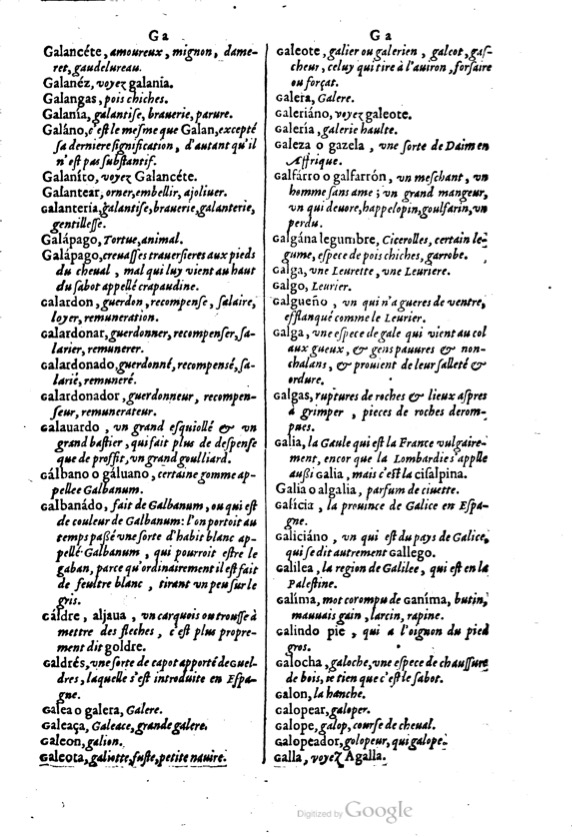 Ga
Galancéte, amoureux, mignon, dame-
ret, gaudelureau.
Galanéz, voyez galania.
Galangas, pois chiches.
Galanía, galantise, brauerie, parure.
Galáno, c'est le mesme que Galan, excepté
sa derniere signification, d'autant qu'il
n'est pas substantif.
Galaníto, voyez Galancéte.
Galantear, orner, embellir, ajoliuer.
Galantería, galantise, brauerie, galanterie,
gentillesse.
Galápago, Tortue, animal.
Galápago, creuasses trauersieres aux pieds
du cheual, mal qui luy vient au haut
du sabot appellé crapaudine.
Galardon, guerdon, recompense, salaire,
loyer, remuneration.
Galardonar, guerdonner, recompenser, sa-
larier, remunerer.
Galardonado, guerdonné, recompensé, sa-
larié, remuneré.
Galardonador, guerdonneur, recompen-
seur, remunerateur.
Galauardo, un grand esquiollé & un
grand bastier, qui fait plus de despense
que de proffit, un grand goulliard.
Gálbano o gáluano, certaine gomme ap-
pellee Galbanum.
Galbanádo, fait de Galbanum, ou qui est
de couleur de Galbanum: l'on portoit au
temps passé une sorte d'habit blanc ap-
pellé Galbanum, qui pourroit estre le
gaban, parce qu'ordinairement il est fait
de feultre blanc, tirant un peu sur le
gris.
Gáldre, aljaua, un carquois ou trousse à
mettre des fleches, c'est plus propre-
ment dit goldre.
Galdrés, une sorte de capot apporté de Guel-
dres, laquelle s'est introduite en Espa-
gne.
Galea o galera, Galere.
Galeaça, Galeace, grande galere.
Galeon, galion.
Galeota, galiotte, fuste, petite nauire.
Ga
galeote, galier ou galerien, galeot, gas-
cheur, celuy qui tire à l'auiron, forsaire
ou forçat.
Galera, Galere.
Galeriáno, voyez galeote.
Galería, galerie haulte.
Galeza o gazela, une sorte de Daim en
Affrique.
Galfárro o galfarrón, un meschant, un
homme sans ame; un grand mangeur,
un qui deuore, happelopin, goulfarin, un
perdu.
Galgána legumbre, Cicerolles, certain le-
gume, espece de pois chiches, garrobe.
Galga, une Leurette, une Leuriere.
Galgo, Leurier.
Galgueño, un qui n'a gueres de ventre,
efflanqué comme le Leurier.
Galga, une espece de gale qui vient au col
aux gueux, & gens pauures & non-
chalans, & prouient de leur salleté &
ordure.
Galgas, ruptures de roches & lieux aspres
à grimper, pieces de roches derom-
pues.
Galia, la Gaule qui est la France vulgaire-
ment, encor que la Lombardie s'applle
aussi Galia, mais c'est la cisalpina.
Galia o algalia, parfum de ciuette.
Galícia, la prouince de Galice en Espa-
gne.
Galiciáno, un qui est du pays de Galice,
qui se dit autrement Gallego.
Galilea, la region de Galilee, qui est en la
Palestine.
Galíma, mot corompu de Ganíma, butin,
mauuais gain, larcin, rapine.
Galindo pie, qui a l'oignon du pied
gros.
Galocha, galoche, une espece de chaussure
de bois, ie tien que c'est le sabot.
Galon, la hanche.
Galopear, galoper.
Galope, galop, course de cheual.
Galopeador, golopeur, qui galope.
Galla, voyez Agalla.
Digitized by Google